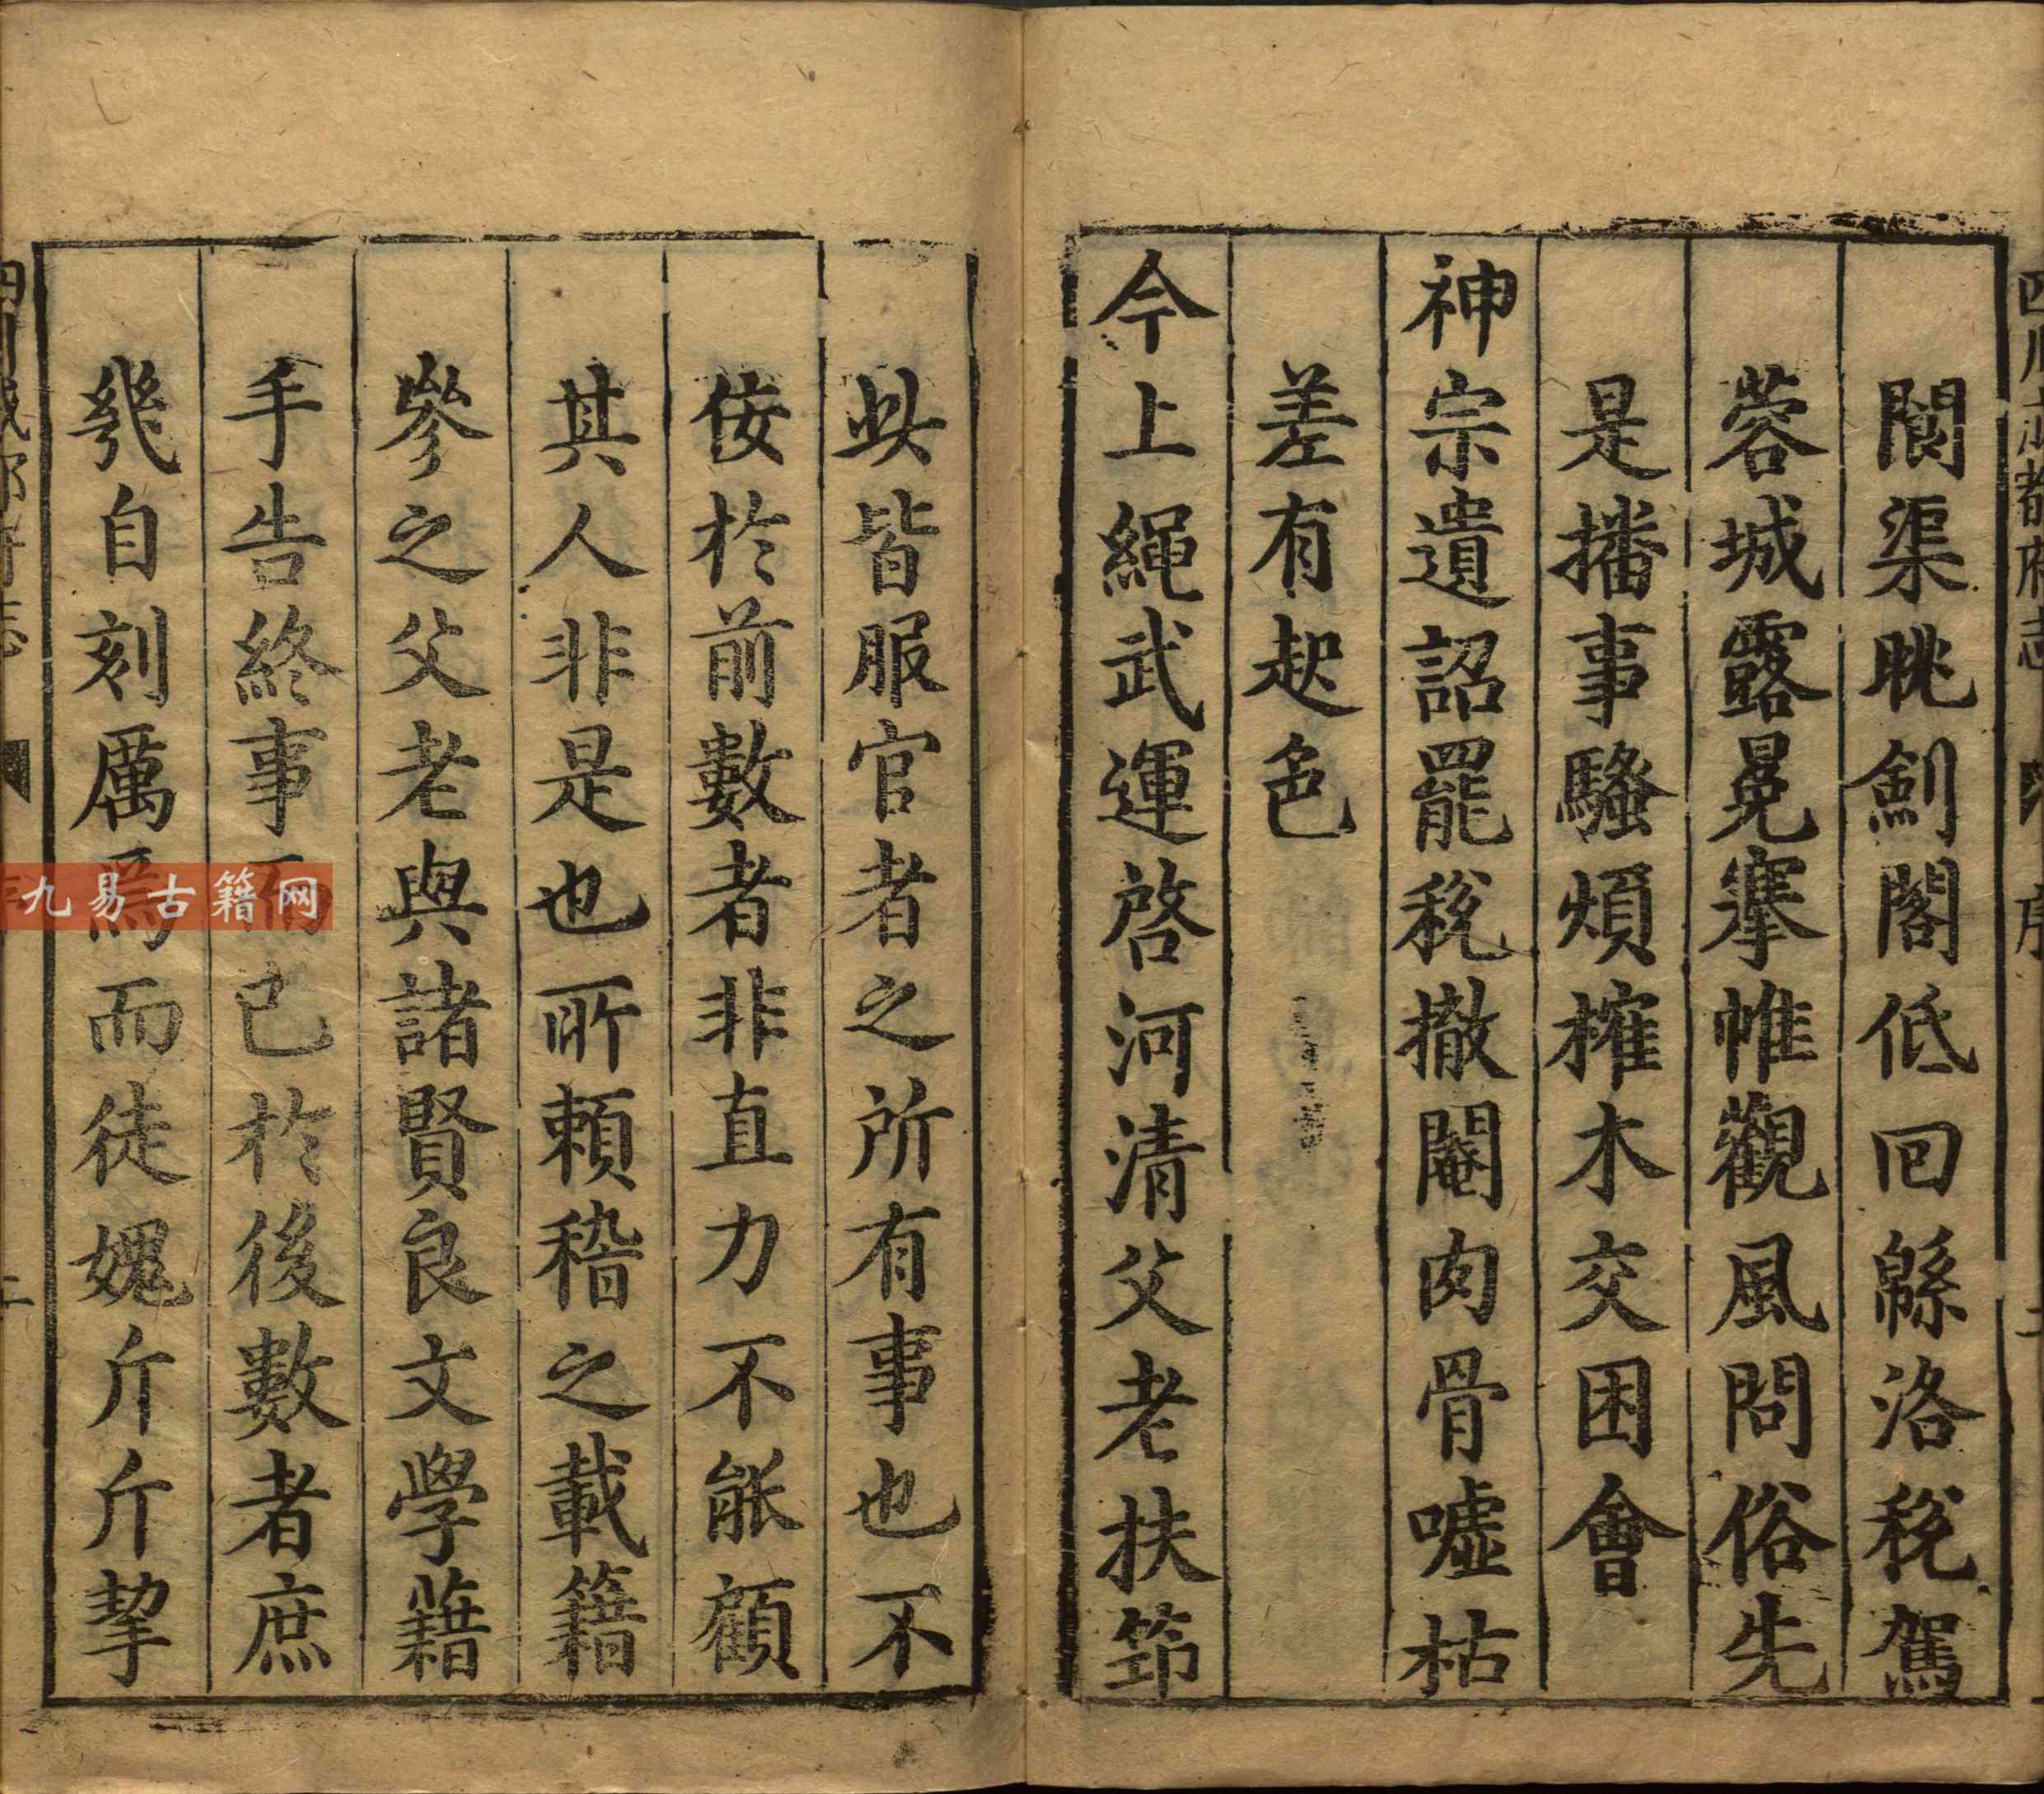 閬渠眺劍閣低回緜洛稅駕
蓉城露冕搴帷觀風問俗先
是播事騷煩搉木交困會
神宗遺詔罷稅撤閹肉骨噓枯
差有起色
今上繩武運啓河清父老扶笻
此皆服官者之所有事也不
佞於前數者非直力不能顧
其人非是也所賴稽之載籍
參之父老與諸賢良文學藉
手告終事而已於後數者庶
幾自刻厲焉而徒媿斤斤挈
四川成都府志
序
四川成都府志
九易古籍网